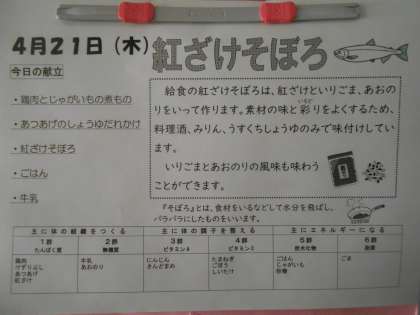 4月21日（木）
紅ざけそぼろ
今日の献立
・鶏肉とじゃがいもの煮もの
・あつあげのしょうゆだれかけ
・紅ざけそぼろ
・ごはん
・牛乳
給食の紅ざけそぼろは、紅ざけといりごま、あおの
りをいって作ります。素材の味と彩りをよくするため、
いろど
料理酒、みりん、うすくちしょうゆのみで味付けしてい
ます。
いりごまとあおのりの風味も味わう
ことができます。
『そぼろ』とは、食材をいるなどして水分を飛ばし、
パラパラにしたものをいいます。
主に体の組織をつくる 主に体の調子を整える 主にエネルギーになる
1群 2群 3群 4群 5群 6群
たんぱく質 無機質 ビタミンA ビタミンC 炭水化物 脂質
鶏肉 牛乳 にんじん たまねぎ ごはん ごま
けずりぶし あおのり さんどまめ ごぼう じゃがいも
あつあげ しいたけ 砂糖
紅ざけ